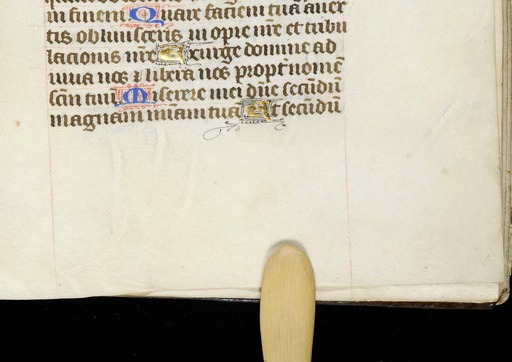 in finem Quare faciem tuā auer
tis obliuisceris in opie nr̄e et tribu
lacionis nr̄e Exurge domine ad
iuua nos et libera nos propt̄ nomē
sc̄m tuū Miserere mei dn̄e secūdū
magnam mīam tuā Et secūdū